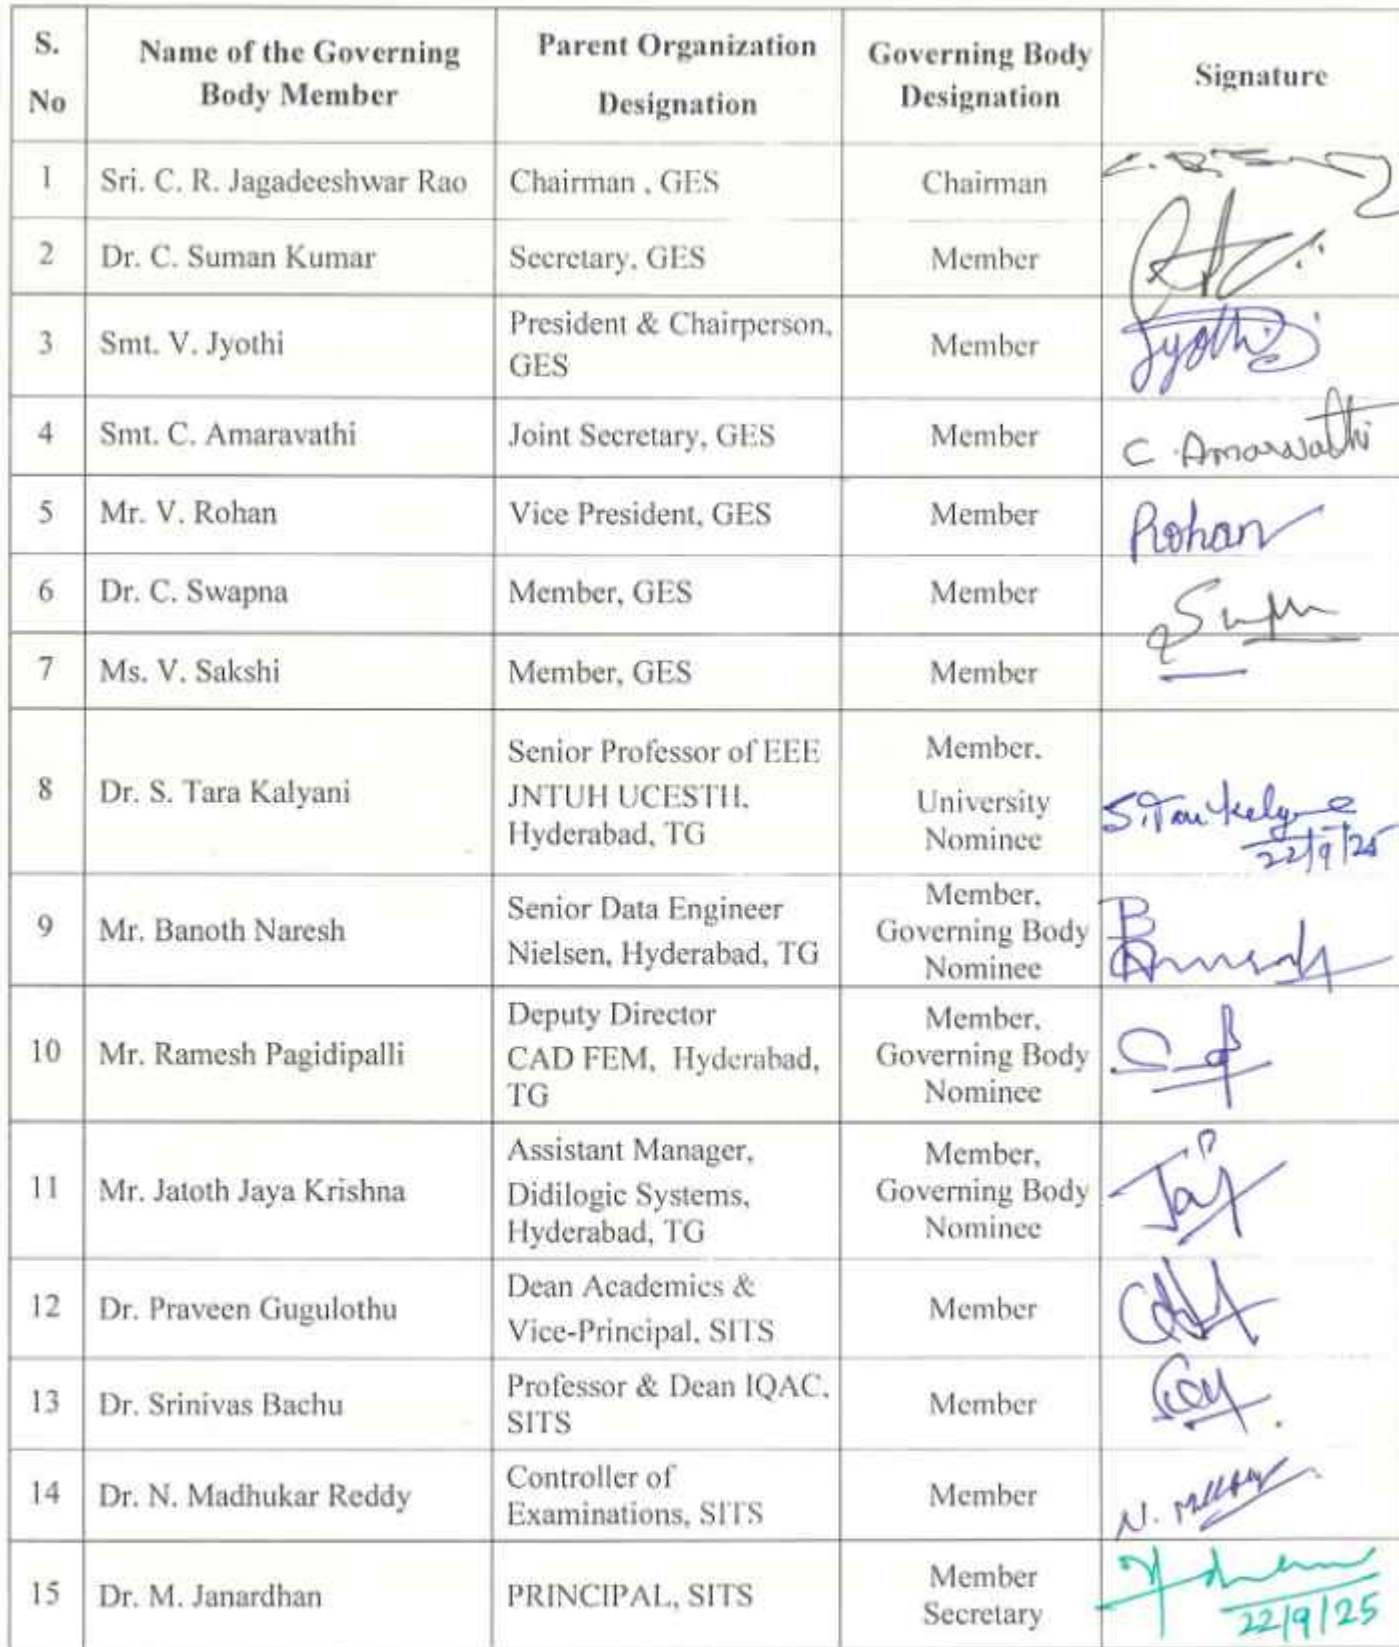 S. No
Name of the Governing Body Member
Parent Organization Designation
Governing Body Designation
Signature
1
Sri. C. R. Jagadeeshwar Rao
Chairman , GES
Chairman
2
Dr. C. Suman Kumar
Secretary, GES
Member
3
Smt. V. Jyothi
President & Chairperson,
GES
Member
Jyothi
4
Smt. C. Amaravathi
Joint Secretary, GES
Member
C. Amaravathi
5
Mr. V. Rohan
Vice President, GES
Member
Rohan
6
Dr. C. Swapna
Member, GES
Member
7
Ms. V. Sakshi
Member, GES
Member
8
Dr. S. Tara Kalyani
Senior Professor of EEE
JNTUH UCESTH,
Hyderabad, TG
Member,
University
Nominee
22/9/25
9
Mr. Banoth Naresh
Senior Data Engineer
Nielsen, Hyderabad, TG
Member,
Governing Body
Nominee
10
Mr. Ramesh Pagidipalli
Deputy Director
CAD FEM, Hyderabad,
TG
Member,
Governing Body
Nominee
11
Mr. Jatoth Jaya Krishna
Assistant Manager,
Didilogic Systems,
Hyderabad, TG
Member,
Governing Body
Nominee
12
Dr. Praveen Gugulothu
Dean Academics &
Vice-Principal, SITS
Member
13
Dr. Srinivas Bachu
Professor & Dean IQAC,
SITS
Member
14
Dr. N. Madhukar Reddy
Controller of
Examinations, SITS
Member
15
Dr. M. Janardhan
PRINCIPAL, SITS
Member
Secretary
22/9/25